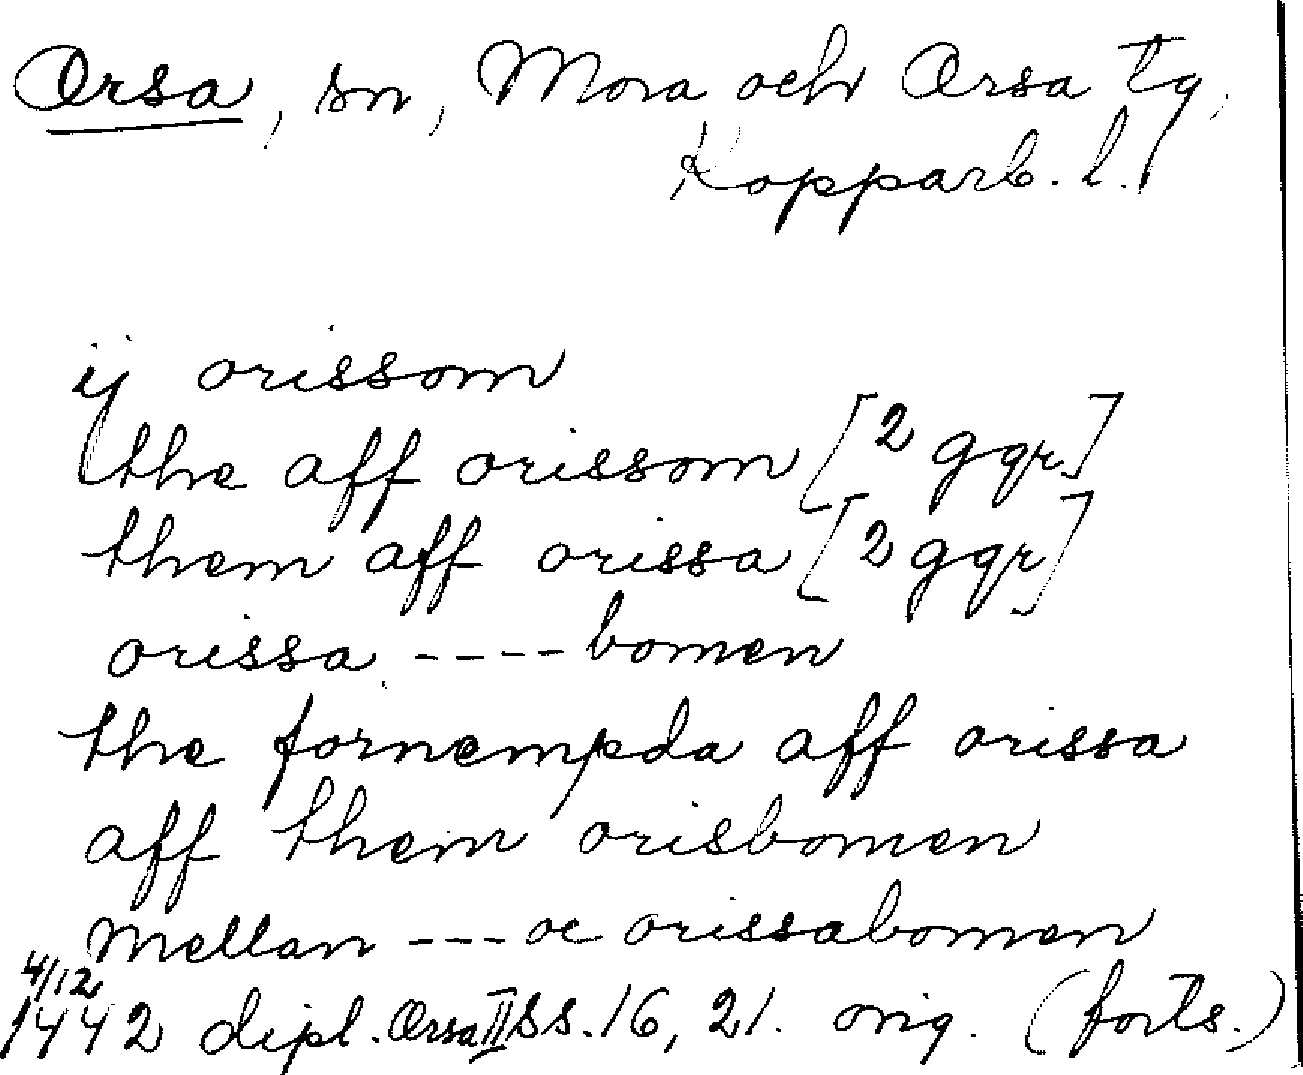 Orsa, sn, Mora och Orsa tg,
Kopparb. l.
ij orissom
the aff orissom [2 ggr]
them aff orissa [2 ggr]
orissa ---- bomen
the fornempda aff orissa
aff them orisbomen
mellan --- oc orissabomen
4/12
1442 dipl. Orsa II ss. 16, 21. orig. (forts.)